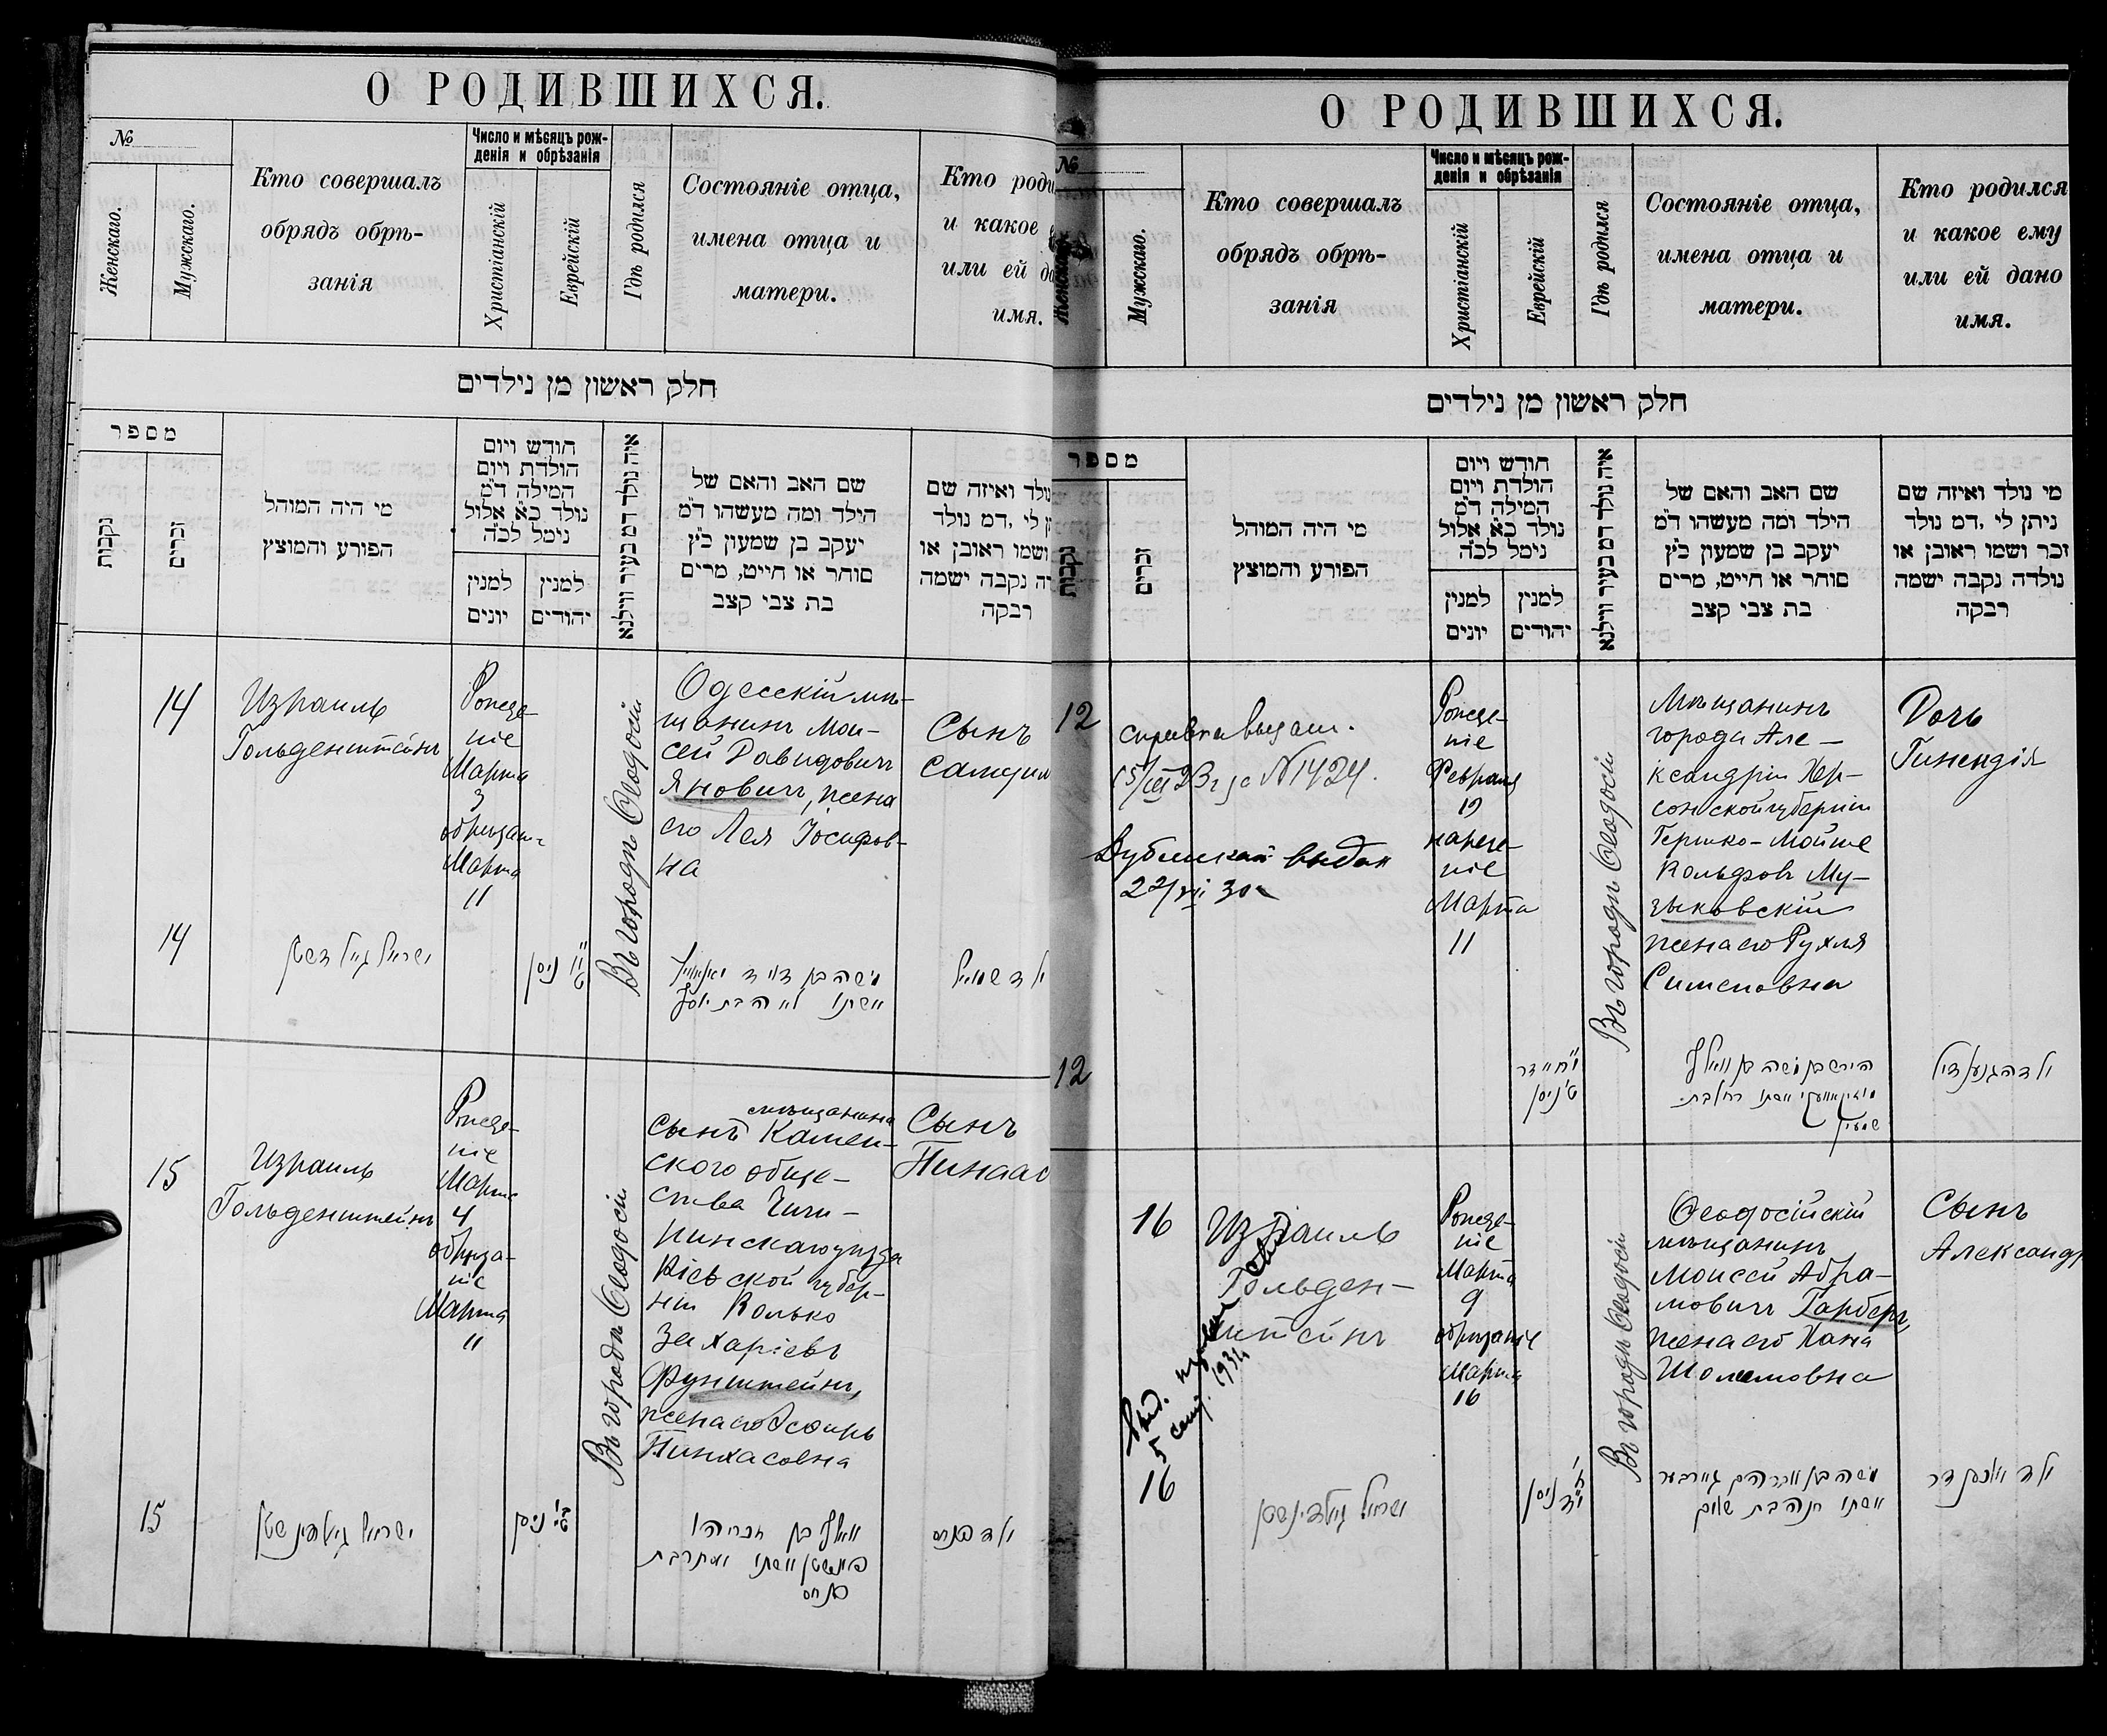 О РОДИВШИХСЯ.
№
Женскаго.
Мужскаго.
Кто совершалъ
обрядъ обрѣ-
занія
Число и мѣсяцъ рож-
денія и обрѣзанія
Христіанскій
Еврейскій
Гдѣ родился
Состояніе отца,
имена отца и
матери.
Кто роди
и какое
или ей да
имя.
חלק ראשון מן נילדים
מספר
נקבות
זכרים
מי היה המוהל
הפורע והמוצץ
חודש ויום
הולדת ויום
המילה ד״מ
נולד כ״א אלול
נימל לכ״ה
למנין
יונים
למנין
יהודים
איה נולד דמ בעיר ווילנא
שם האב והאם של
הילד ומה מעשהו ד״מ
יעקב בן שמעון כ״ץ
סוחר או חייט, מרים
בת צבי קצב
נולד ואיזה שם
תן לי, דמ נולד
ושמו ראובן או
דה נקבה ישמה
רבקה
14
Израиль
Гольденштейнъ
Рожде-
ніе
Марта
3
обрѣзан-
Марта
11
Въ городѣ Ѳеодосіи
Одесскій мѣ-
щанинъ Мои-
сей Давидовичъ
Яновичъ, жена
его Лея Іосифов-
на
Сынъ
Самуил
14
ישראל גאלדשטין
ניסן
משה בן דוד יאנאוויץ
ואשתו לאה בת יוסף
ילד שמואל
15
Израиль
Гольденштейнъ
Рожде-
ніе
Марта
4
обрѣза-
ніе
Марта
11
Въ городѣ Ѳеодосіи
мѣщанина
Сынъ Камен-
ского обще-
ства Чиги-
ринскаго уѣзда
Кіевской губер-
ніи Волько
Захаріевъ
Фунштейнъ,
жена его Эсѳирь
Пинхасовна
Сынъ
Пинхас
15
ישראל גאלדינשטין
ניסן
וואלף בן זכריהו
פונשטין ואשתו אסתר בת
פנחס
ילד פנחס
О РОДИВШИХСЯ.
№
Женскаго.
Мужскаго.
Кто совершалъ
обрядъ обрѣ-
занія
Число и мѣсяцъ рож-
денія и обрѣзанія
Христіанскій
Еврейскій
Гдѣ родился
Состояніе отца,
имена отца и
матери.
Кто родился
и какое ему
или ей дано
имя.
חלק ראשון מן נילדים
מספר
נקבות
זכרים
מי היה המוהל
הפורע והמוצץ
חודש ויום
הולדת ויום
המילה ד״מ
נולד כ״א אלול
נימל לכ״ה
למנין
יונים
למנין
יהודים
איה נולד דמ בעיר ווילנא
שם האב והאם של
הילד ומה מעשהו ד״מ
יעקב בן שמעון כ״ץ
סוחר או חייט, מרים
בת צבי קצב
מי נולד ואיזה שם
ניתן לי, דמ נולד
זכר ושמו ראובן או
נולדה נקבה ישמה
רבקה
12
справка выдан.
15/III 23 г за №1424.
Дубликат выдан
22/VII 30
Рожде-
ніе
Февраля
19
нарече-
ніе
Марта
11
Въ городѣ Ѳеодосіи
Мѣщанинъ
города Але-
ксандріи Хер-
сонской губерніи
Гершко-Мойше
Вольфовъ Му-
зыковскій
жена его Рухля
Симоновна
Дочь
Гинендія
12
אדר
ניסן
הירש בן משה בן וואלף
ואשתו רחל בת
שמעון
ילדה גנענדיל
16
Израиль
Гольден-
штейнъ
Выд.
5 сент. 1934
Рожде-
ніе
Марта
9
обрѣзаніе
Марта
16
Въ городѣ Ѳеодосіи
Ѳеодосійскій
мѣщанинъ
Моисей Абра-
мовичъ Гарберъ,
жена его Хана
Шоломовна
Сынъ
Александр
16
ישראל גאלדינשטין
ניסן
משה בן אברהם גארבער
ואשתו חנה בת שלום
ילד אלכסנדר